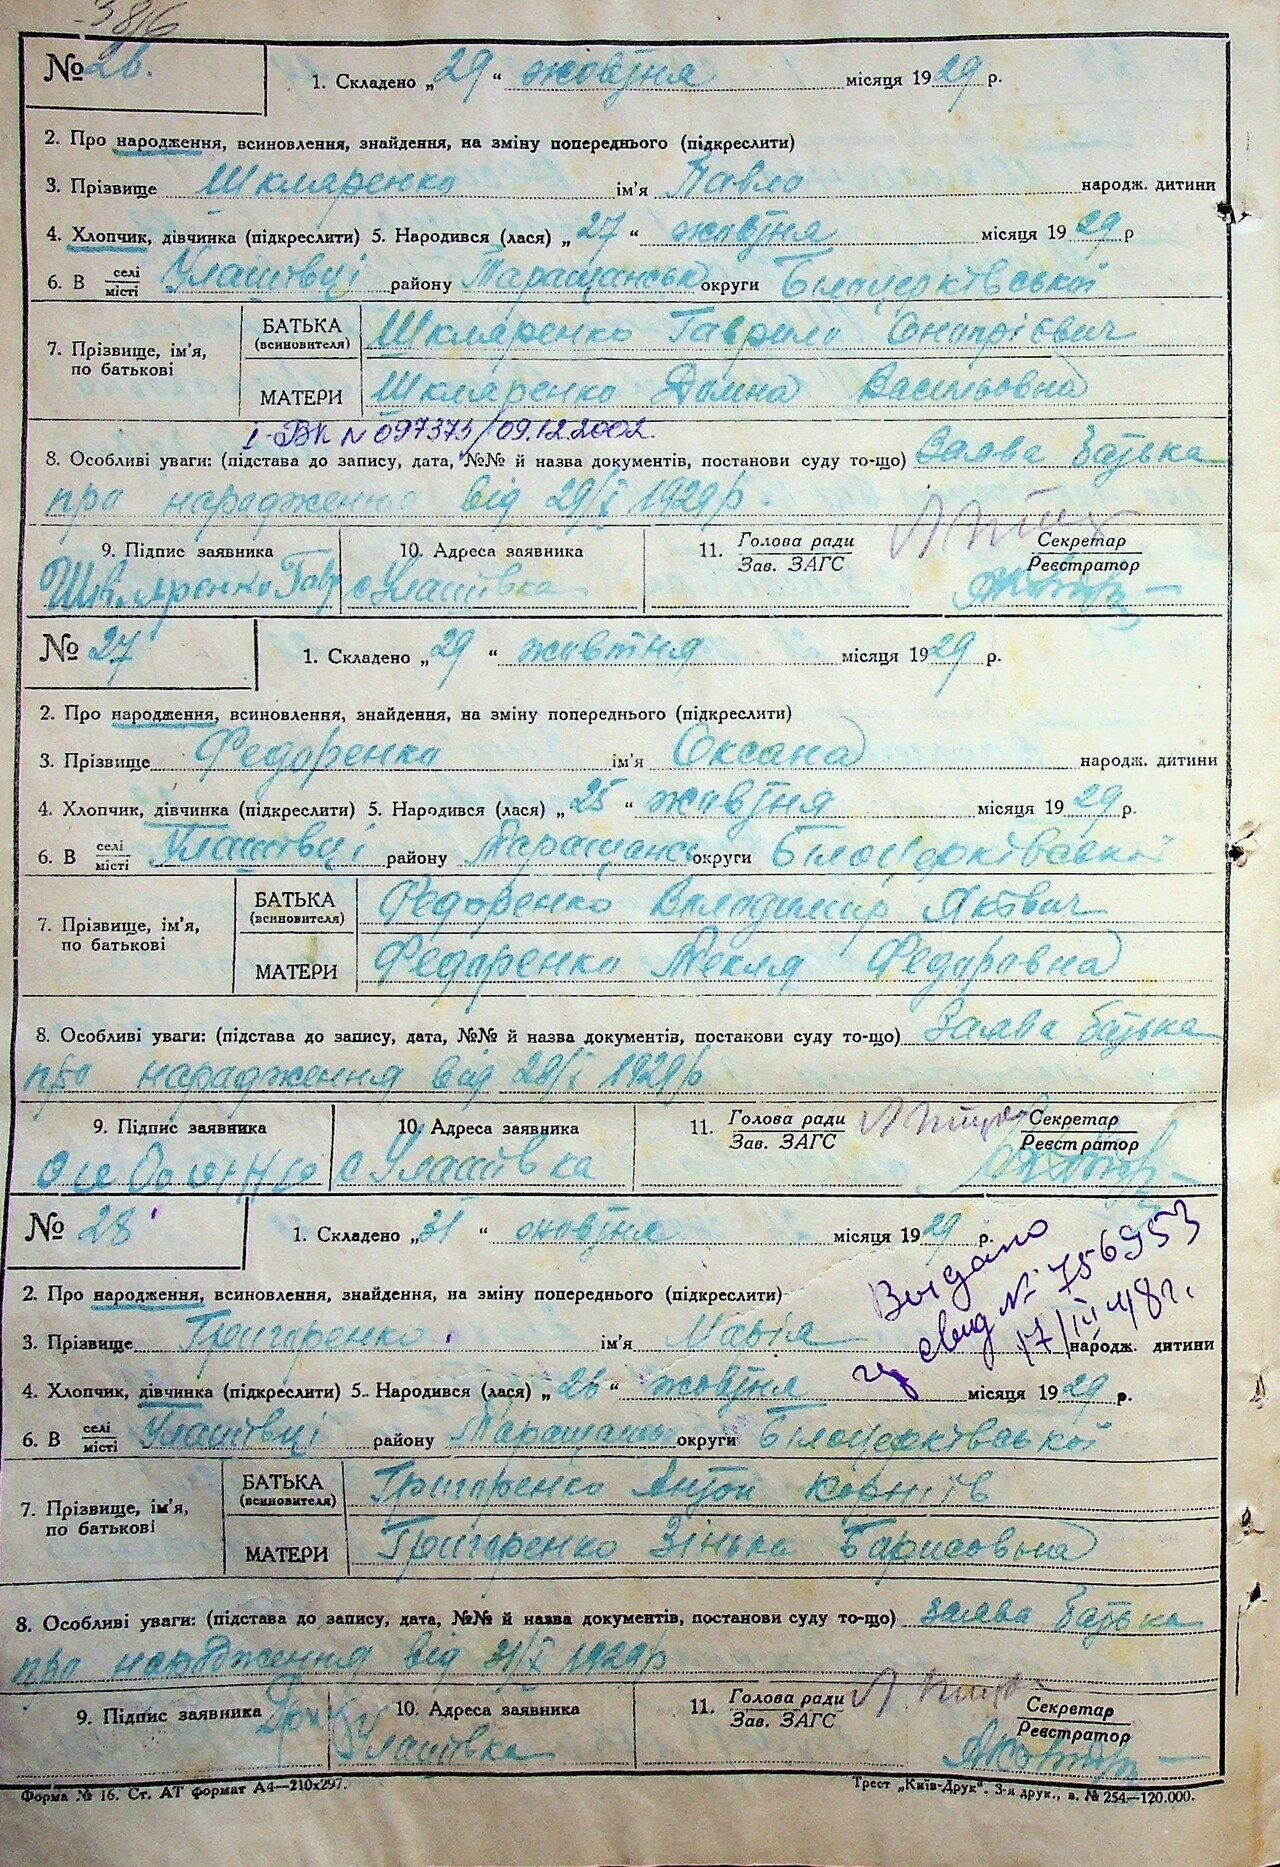 № 26. 1. Складено „29“ жовтня місяця 1929 р.
2. Про народження, всиновлення, знайдення, на зміну попереднього (підкреслити)
3. Прізвище Шкляренко ім'я Павло народж. дитини
4. Хлопчик, дівчинка (підкреслити) 5. Народився (лася) „27“ жовтня місяця 1929 р
6. В селі/місті Улашівці району Таращанськ округи Білоцерківської
7. Прізвище, ім'я, по батькові БАТЬКА (всиновителя) Шкляренко Гаврило Онапрієвич
МАТЕРИ Шкляренко Домна Васильовна
I-БК N 097373/09.12.2002.
8. Особливі уваги: (підстава до запису, дата, №№ й назва документів, постанови суду то-що) Заява батька
про народження від 29/X 1929 р.
9. Підпис заявника 10. Адреса заявника 11. Голова ради Секретар
Зав. ЗАГС Реєстратор
Шкляренко Гавр с Улашівка
№ 27 1. Складено „29“ жовтня місяця 1929 р.
2. Про народження, всиновлення, знайдення, на зміну попереднього (підкреслити)
3. Прізвище Федоренко ім'я Оксана народж. дитини
4. Хлопчик, дівчинка (підкреслити) 5. Народився (лася) „25“ жовтня місяця 1929 р.
6. В селі/місті Улашівці району Таращанс округи Білоцерківської
7. Прізвище, ім'я, по батькові БАТЬКА (всиновителя) Федоренко Володимир Яківич
МАТЕРИ Федоренко Текля Федоровна
8. Особливі уваги: (підстава до запису, дата, №№ й назва документів, постанови суду то-що) Заява батька
про народження від 29/X 1929 р
9. Підпис заявника 10. Адреса заявника 11. Голова ради Секретар
Зав. ЗАГС Реєстратор
с Улашівка
№ 28 1. Складено „31“ жовтня місяця 1929 р.
Видано
свид № 756953
17/III 48 г.
2. Про народження, всиновлення, знайдення, на зміну попереднього (підкреслити)
3. Прізвище Григоренко ім'я Марія народж. дитини
4. Хлопчик, дівчинка (підкреслити) 5. Народився (лася) „26“ жовтня місяця 1929 р.
6. В селі/місті Улашівці району Таращанськ округи Білоцерківської
7. Прізвище, ім'я, по батькові БАТЬКА (всиновителя) Григоренко Антон Корніїв
МАТЕРИ Григоренко Зінька Барисовьна
8. Особливі уваги: (підстава до запису, дата, №№ й назва документів, постанови суду то-що) Заява батька
про народження від 31/X 1929 р
9. Підпис заявника 10. Адреса заявника 11. Голова ради Секретар
Зав. ЗАГС Реєстратор
Улашівка
Форма № 16. Ст. АТ формат А4—210х297. Трест „Київ-Друк“. 3-я друк., в. № 254—120.000.